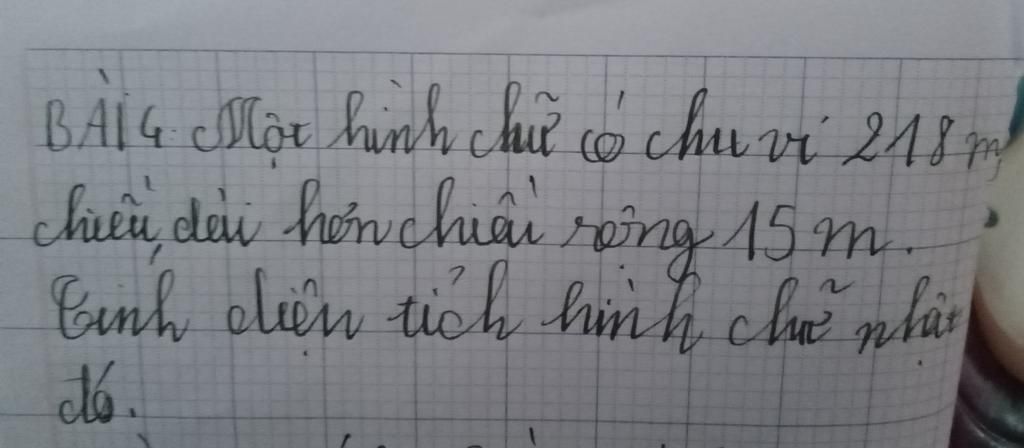 BÀI 4. Một hình chữ có chu vi 218 m,
chiều dài hơn chiều rộng 15 m.
Tính diện tích hình chữ nhật
đó.